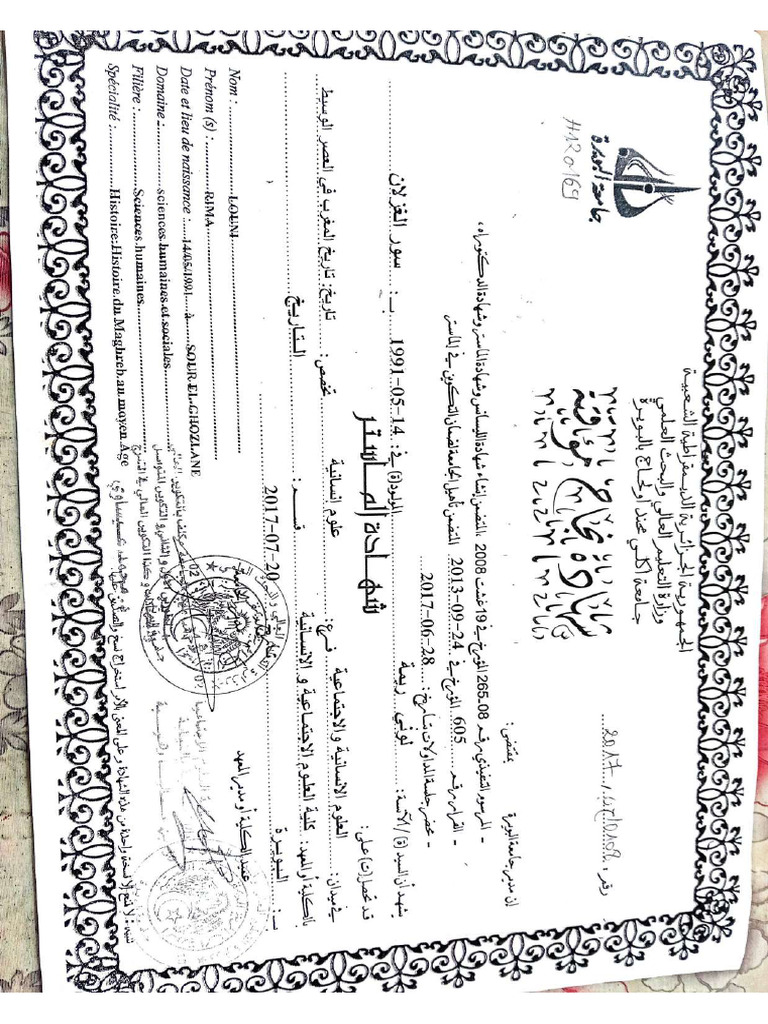 الجمهورية الجزائرية الديمقراطية الشعبية
وزارة التعليم العالي والبحث العلمي
جامعة أكلي محند أولحاج بالبويرة
جامعة البويرة
شهادة نجاح مؤقتة
إن مدير جامعة البويرة
بمقتضى:
- المرسوم التنفيذي رقم 265.08 المؤرخ في 19 غشت 2008 المتضمن إنشاء شهادة الليسانس وشهادة الماستر وشهادة الدكتوراه،
- القرار رقم 605 المؤرخ في 2013-09-24 المتضمن تأهيل الجامعة لضمان التكوين في الماستر
- محضر جلسة المداولات بتاريخ: 2017-06-28
يشهد أن السيد(ة) / الآنسة: لوني ريمة المولود(ة) في: 1991-05-14 بـ: سور الغزلان
قد تحصل(ت) على:
شهادة الماستر
في ميدان: العلوم الانسانية والاجتماعية فرع: علوم انسانية تخصص: تاريخ: تاريخ المغرب في العصر الوسيط
بالكلية أو المعهد: كلية العلوم الاجتماعية و الانسانية قسم: التاريخ
بـ: البويرة 2017-07-20
عميد الكلية أو مدير المعهد
Nom : LOUNI
Prénom (s) : RIMA
Date et lieu de naissance : 14/05/1991 à SOUR EL GHOZLANE
Domaine : sciences humaines et sociales
Filière : Sciences humaines
Spécialité : Histoire:Histoire du Maghreb au moyen Age